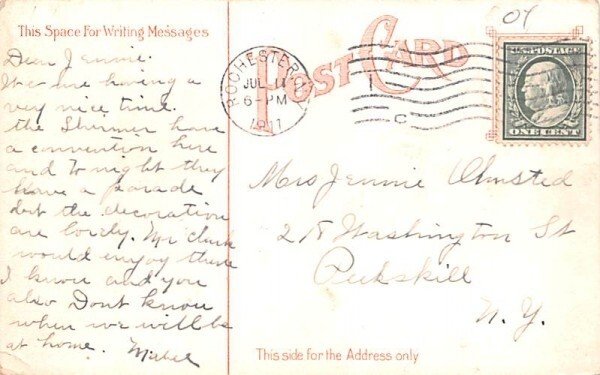 This Space For Writing Messages
Dear Jennie.
We are having a
very nice time.
the Shriner have
a convention here
and to night they
have a parade
but the decoration
are lovely. Mr Clark
would enjoy there
I know and you
also Dont know
when we will be
at home. Mabel
POST CARD
ROCHESTER
JUL 11
6 PM
1911
C
04
U.S. POSTAGE
ONE CENT
Mrs Jennie Olmsted
Washington St
Peekskill
N.Y.
This side for the Address only